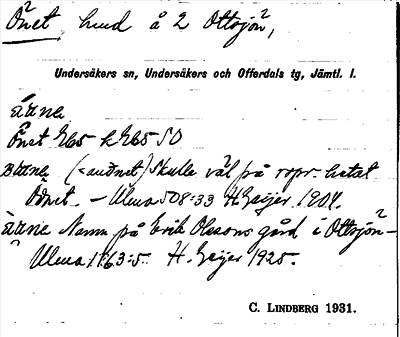 Önet, hmd å 2 Ottsjön,
Undersåkers sn, Undersåkers och Offerdals tg, Jämtl. l.
Önet 265 k 265 SO
(<auðnet) Skulle väl på ropr. hetat
Oðnet. – Ulma 508:33 H. Geijer 1904.
Namn på Erik Olssons gård i Ottsjön –
Ulma 1763:5. H. Geijer 1925.
C. LINDBERG 1931.